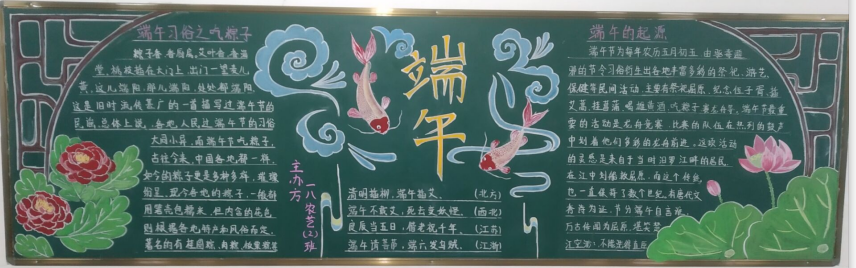 端午习俗之吃粽子
粽子香,香厨房。艾叶香,香满
堂。桃枝插在大门上,出门一望麦儿
黄。这儿端阳,那儿端阳,处处都端阳。
这是旧时流传甚广的一首描写过端午节的
民谣。总体上说,各地人民过端午节的习俗
大同小异,而端午节吃粽子,
古往今来,中国各地都一样。
如今的粽子更是多种多样,璀璨
纷呈。现今各地的粽子,一般都
用箬壳包糯米,但内含的花色
则根据各地特产和风俗而定,
著名的有桂圆粽、肉粽、
端午
主办方
一八农艺(2)班
清明插柳,端午插艾。(北方)
端午不戴艾,死去变妖怪。(西北)
良辰当五日,偕老祝千年。(江苏)
端午请菩萨,端六发乌贼。(江浙)
端午的起源
端午节为每年农历五月初五
保健等民间活动,主要有祭祀屈原,纪念伍子胥,插
艾蒿,挂菖蒲,喝雄黄酒,吃粽子,赛龙舟等。端午节最重
要的活动是龙舟竞赛,比赛的队伍在热烈的鼓声
中划着他们多彩的龙舟前进。这项活动
的灵感是来自于当时汨罗江畔的居民,
在江中划船救屈原,而这个传统
也一直保持了数个世纪。有唐代文
秀诗为证:节分端午自谁言,
万古传闻为屈原。堪笑楚
江空渺渺,不能洗得直臣